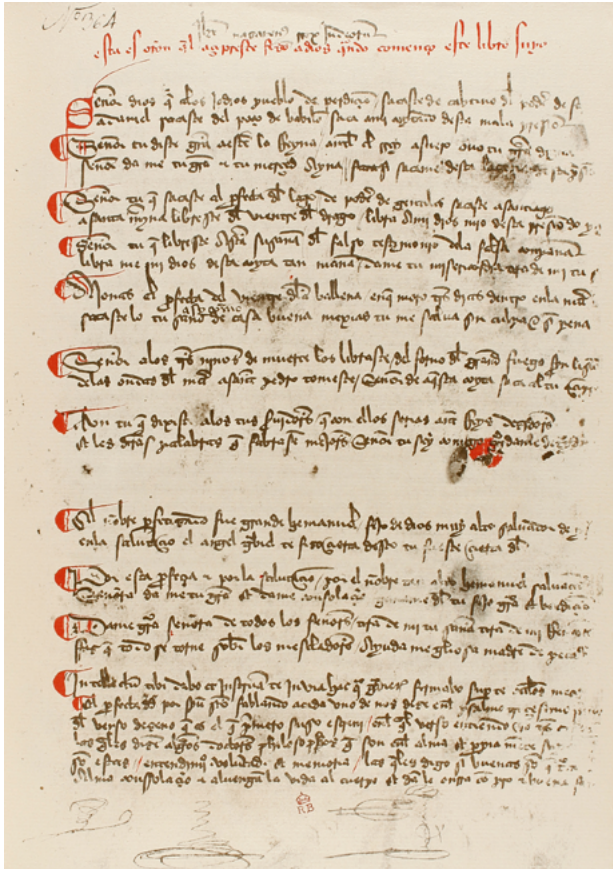 Nº 164
Jhs nazarenus rex judeorum
esta es oraçion qel açipreste fizo a dios quando començo este libro suyo
Señor dios q a los jodios pueblo de perdiçion sacaste de cabtivo del poder de
a daniel sacaste del poço de babilon saca a mi coytado desta mala presion
Señor tu diste graçia a ester la Reyna antel el Rey asuero ovo tu graçia digna
señor da me tu graçia e tu merçed Ayna sacame desta lazeria de
Señor tu q sacaste al profeta del lago de poder de gentiles sacaste a santiago
a santa marina libreste del vientre del drago libra a mi dios mio desta presion do
Señor tu q libreste a santa susaña del falso testimonio dela falsa conpaña
libra me mi dios desta coyta tan maña dame tu misericordia tira de mi tu s
A jonas el profeta del vientre dela ballena en q moro tres dias dentro en la mar
sacaste lo tu sano asy commo de casa buena mexias tu me salva sin culpa e sin pena
Señor alos tres niños de muerte los libraste del forno del grand fuego sin lision
delas ondas del mar a sant pedro tomeste Señor de aquesta coyta saca al tu
Avn tu q dixiste alos tus servidores q con ellos serias ante Reys dezidores
e les darias palabras q fabrasen mejores Señor tu sey comigo guardame de
El nonbre profetizado fue grande hemanuel fijo de dios muy alto salvador de
en la salutaçion el angel gabriel te fizo çierta desto tu fueste çierta del
Por esta profeçia e por la salutaçion por el nonbre tan alto hemanuel salvaçion
Señora da me tu graçia e dame consolaçion ganame del tu fijo graçia e bendiçion
Dame graçia señora de todos los señores tira de mi tu saña tira de mi Rencores
faz q todo se torne sobre los mescladores Ayuda me gloriosa madre de pecadores
Intellectum tibi dabo et Instruam te In via hac qua gradieris firmabo super te occulos meos
El profeta david por spiritu santo fablando a cada uno de nos dize enel psalmo triçesimo primo
del verso dezeno q es el q primero suso escrevi enel qual verso entiendo yo tres cosas
las quales dizen algunos doctores philosophos q son enel alma e propia mente suyas
son estas entendimiento voluntad e memoria las quales digo si buenas son q traen
alma consolaçion e aluengan la vida al cuerpo e dan le onrra con pro e buena fama
RB